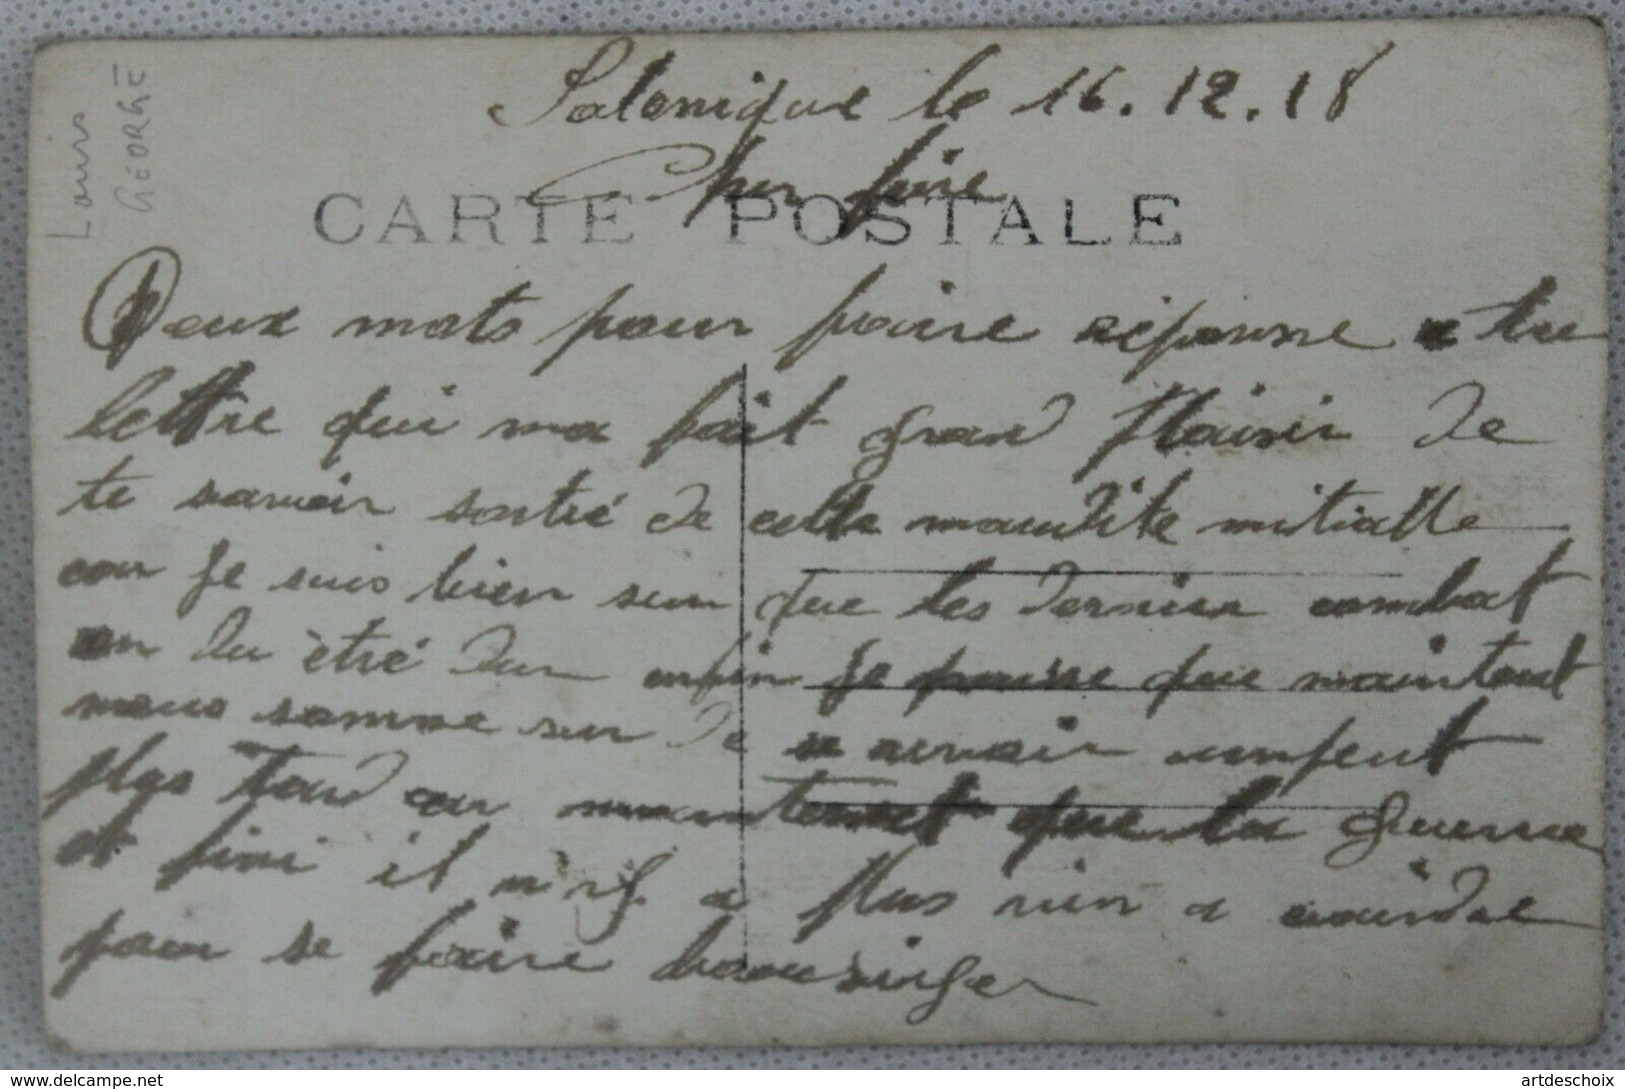 Louis
GEORGE
Salonique le 16.12.18
Cher frère
CARTE POSTALE
Deux mots pour faire réponse a ta
lettre qui ma fait grand plaisir de
te savoir sortié de cette maudite mitialle
car je suis bien sur que les dernier combat
on du ètré dur enfin je pense que maintent
nous somme sur de se revoir un peut
plus tard car maintenent que la guerre
et fini il n'y a plus rien a craindre
pour se faire
delcampe.net
artdeschoix